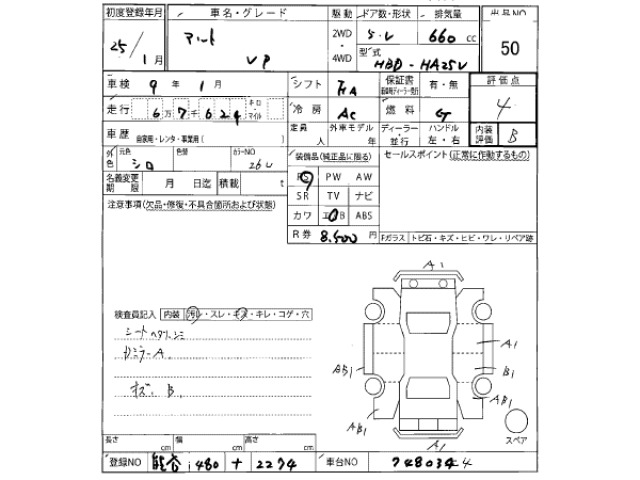 初度登録年月 車名・グレード 駆動 ドア数・形状 排気量 出品NO
25/1月 VP 2WD・4WD 5・V 660cc 50
型式 HBD-HA25V
車検 9年1月 シフト FA 保証書 有・無 評価点
走行 6万7千624 キロ・マイル 冷房 AC 燃料 G 4
車歴 自家用・レンタ・事業用( ) 定員 人 外車モデル 年 ディーラー 並行 ハンドル 左・右 内装評価 B
外色 元色 シロ 色替 カラーNO 26U 装備品(純正品に限る) セールスポイント(正常に作動するもの)
名義変更期限 月 日迄 積載 t PS PW AW
注意事項(欠品・修復・不具合箇所および状態) SR TV ナビ
カワ エアB ABS
R券 8.500円 Fガラス トビ石・キズ・ヒビ・ワレ・リペア跡
A1
検査員記入 内装 汚レ・スレ・キズ・キレ・コゲ・穴
A1
AB1 B1
キズ B AB1
AB1
A1 スペア
長さ cm 幅 cm 高さ cm
登録NO 熊谷 480 + 2274 車台NO 748034